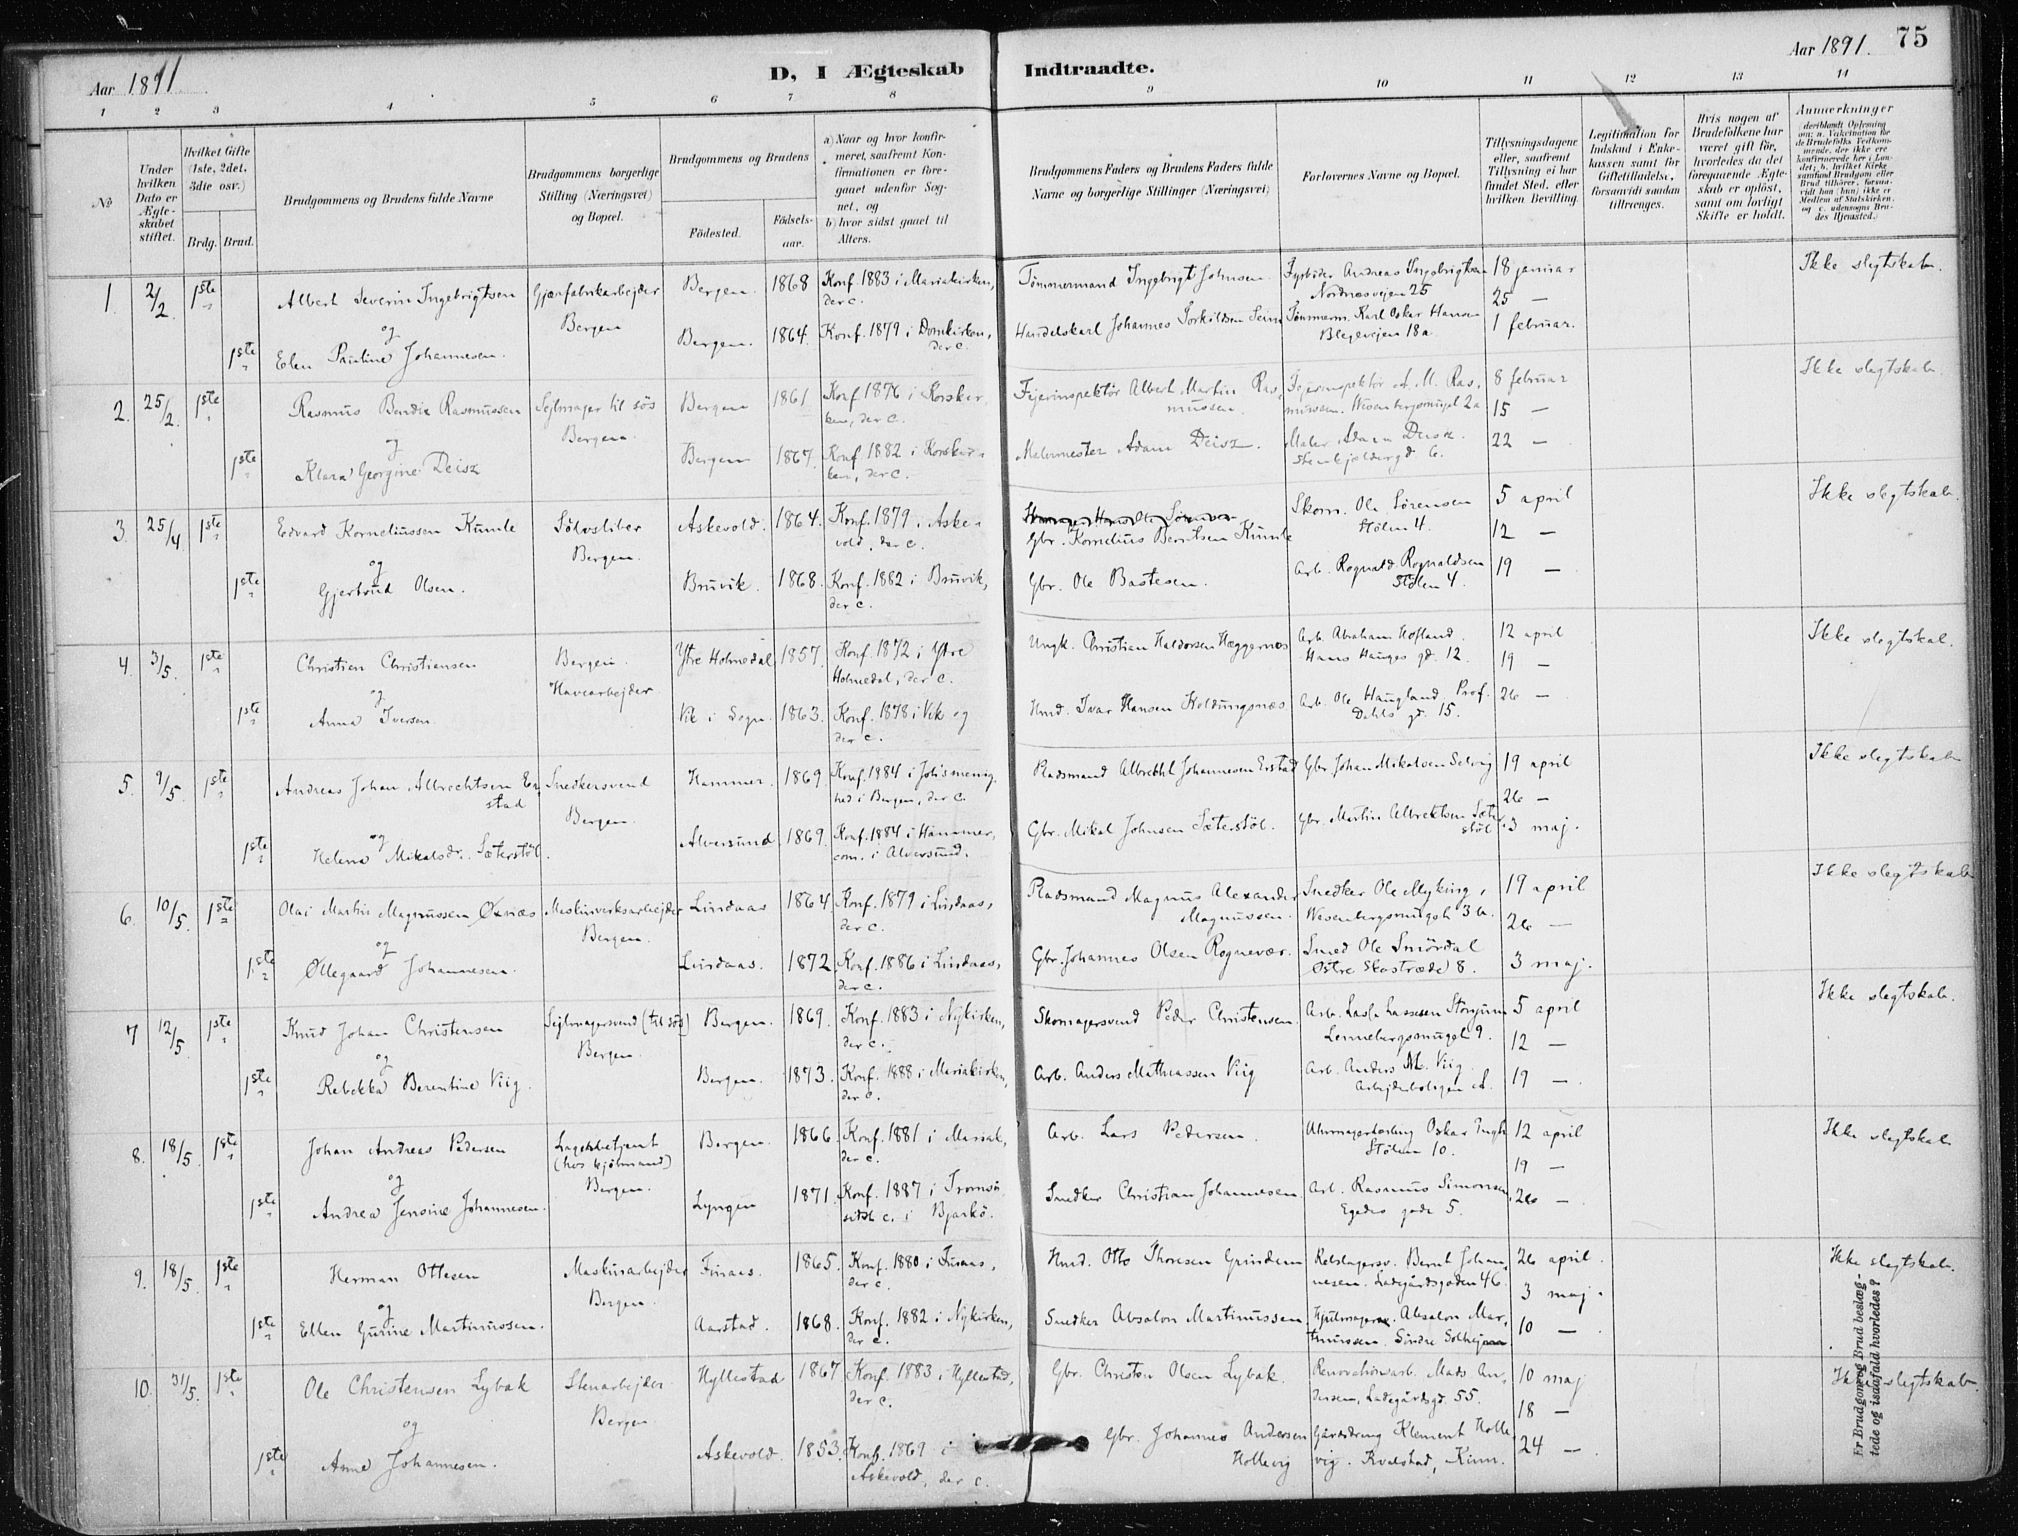 Aar 1891.
D, I Ægteskab Indtraadte.
Aar 1891. 75
1 2 3 4 5 6 7 8 9 10 11 12 13 14
No
Under hvilken Dato er Ægteskabet stiftet.
Hvilket Gifte (1ste, 2det, 3dte osv.)
Brdg. Brud.
Brudgommens og Brudens fulde Navne
Brudgommens borgerlige Stilling (Næringsvei) og Bopæl.
Brudgommens og Brudens
Födested. Födselsaar.
a) Naar og hvor konfirmeret, saafremt Konfirmationen er foregaaet udenfor Sognet, og
b) hvor sidst gaaet til Alters.
Brudgommens Faders og Brudens Faders fulde Navne og borgerlige Stillinger (Næringsvei)
Forlovernes Navne og Bopæl.
Tillysningsdagene eller, saafremt Tillysning ei har fundet Sted, efter hvilken Bevilling.
Legitimation for Indskud i Enkekassen samt for Giftetilladelse, forsaavidt saadan tiltrænges.
Hvis nogen af Brudefolkene har været gift för, hvorledes da det foregaaende Ægteskab er oplöst, samt om lovligt Skifte er holdt.
Anmerkninger
1. 2/2. 1ste Albert Severin Ingebrigtsen Gjærfabrikarbejder Bergen 1868 Konf. 1883 i Mariakirken, der c. Tömmermand Ingebrigt Johnsen Fyrböder Andreas Ingebrigtsen Nordnæsvejen 25 18 januar Ikke slegtskab.
og Bergen 25 —
1ste Elen Pauline Johannesen. Bergen. 1864. Konf. 1879 i Domkirken, der c. Handelskarl Johannes Torkildsen Seim Tömmerm. Karl Oskar Hansen Blegevejen 18a. 1 februar.
2. 25/2. 1ste Rasmus Bendix Rasmussen Sejlmager til sös Bergen 1861 Konf. 1876 i Korskirken, der c. Fejerinspektör Albert Martin Rasmussen. Fejerinspektör A. M. Rasmussen. Wesenbergsmuget 2a 8 februar Ikke slegtskab.
og Bergen. 15 —
1ste Klara Georgine Deisz Bergen 1867. Konf. 1882 i Korskirken, der c. Malermester Adam Deisz. Maler Adam Deisz. Stenkjeldergd. 6. 22 —
3. 25/4 1ste Edvard Korneliussen Kumle Sölvsliber Askevold. 1864. Konf. 1879 i Askevold, der c. Gbr. Kornelius Berntsen Kumle Skom. Ole Sörensen Stölen 4. 5 april Ikke slegtskab.
og Bergen. 12 —
1ste Gjertrud Olsen. Bruvik. 1868. Konf. 1882 i Bruvik, der c. Gbr. Ole Bastesen. Arb. Rognald Rognaldsen Stölen 4. 19 —
4. 3/5. 1ste Christian Christiansen Bergen. Ytre Holmedal 1857. Konf. 1872 i Ytre Holmedal, der c. Ungk. Christian Haldorsen Heggernæs Arb. Abraham Hofland. Hans Hauges gd. 12. 12 april Ikke slegtskab.
og Havearbejder. 19 —
1ste Anna Iversen. Vik i Sogn. 1863. Konf. 1878 i Vik og der c. Hmd. Ivar Hansen Holdungsnæs Arb. Ole Haugland, Prof. Dahls gd. 15. 26 —
5. 9/5. 1ste Andreas Johan Albrechtsen Erstad Snedkersvend Hammer. 1869. Konf. 1884 i Joh's menighed i Bergen, der c. Pladsmand Albrekht Johannesen Erstad Gbr. Johan Mikalsen Selvig 19 april Ikke slegtskab
og Bergen. 26 —
1ste Helena Mikalsdr. Sæterstöl. Alversund 1869. Konf. 1884 i Hammer, com. i Alversund. Gbr. Mikal Johnsen Sæterstöl. Gbr. Martin Albrektsen Sæterstöl. 3 maj.
6. 10/5. 1ste Olai Martin Magnussen Oxnæs Maskinverksarbejder Lindaas 1864. Konf. 1879 i Lindaas, der c. Pladsmand Magnus Alexander Magnussen. Snedker Ole Myking, Wesenbergsmuget 3b. 19 april Ikke slegtskab
og Bergen. 26 —
1ste Øllegaard Johannesen. Lindaas. 1872. Konf. 1886 i Lindaas, der c. Gbr. Johannes Olsen Rognevær. Smed Ole Smördal Østre Skostræde 8. 3 maj.
7 12/5. 1ste Knud Johan Christensen Sejlmagersvend (til sös) Bergen. 1869. Konf. 1883 i Nykirken, der c. Skomagersvend Peder Christensen. Arb. Lasse Lassesen Lennebergsmuget 9. 5 april Ikke slegtskab.
og Bergen. 12 —
1ste Rebekka Berentine Viig. Bergen. 1873. Konf. 1888 i Mariakirken, der c. Arb. Anders Mathiassen Viig Arb. Anders M. Viig. Arbejderboligen A. 19 —
8. 18/5. 1ste Johan Andreas Pedersen Lagerbetjent (hos kjöbmand) Bergen. 1866. Konf. 1881 i Mariak, der c. Arb. Lars Pedersen. Oskar Stölen 10. 12 april Ikke slegtskab
og Bergen. 19 —
1ste Andrea Jensine Johannesen. Lyngen 1871. Konf. 1887 i Tromsö, sidst c. i Bjarkö. Snedker Christian Johannesen Arb. Rasmus Simonsen, Egedes gade 5. 26 —
9. 18/5. 1ste Herman Ottesen Maskinarbejder Finaas. 1865. Konf. 1880 i Finaas, der c. Hmd. Otto Thoresen Grindem Rebslagersv. Bernt Johannesen. Ladegårdsgaden 46. 26 april. Ikke slegtskab.
og Bergen. 3 maj.
1ste Ellen Gurine Martinussen. Aarstad. 1868. Konf. 1882 i Nykirken, der c. Snedker Absalon Martinussen Hjulmager. Absalon Martinussen. Söndre Solhejm 10 —
10. 31/5. 1ste Ole Christensen Lybak Stenarbejder Hyllestad 1867 Konf. 1883 i Hyllestad, der c. Gbr. Christen Olsen Lybak. Renovationsarb. Mads Andersen, Ladegårdsgd. 55. 10 maj Ikke slegtskab.
og Bergen 18 —
1ste Anne Johannesen. Askevold. 1853. Konf. 1869 i Askevold, der c. Gbr. Johannes Andersen Hollevig Gårddreng Klement Hollevig. Kvalstad, Kinn. 24 —
Er Brudgom og Brud beslægtede og isaafald hvorledes?